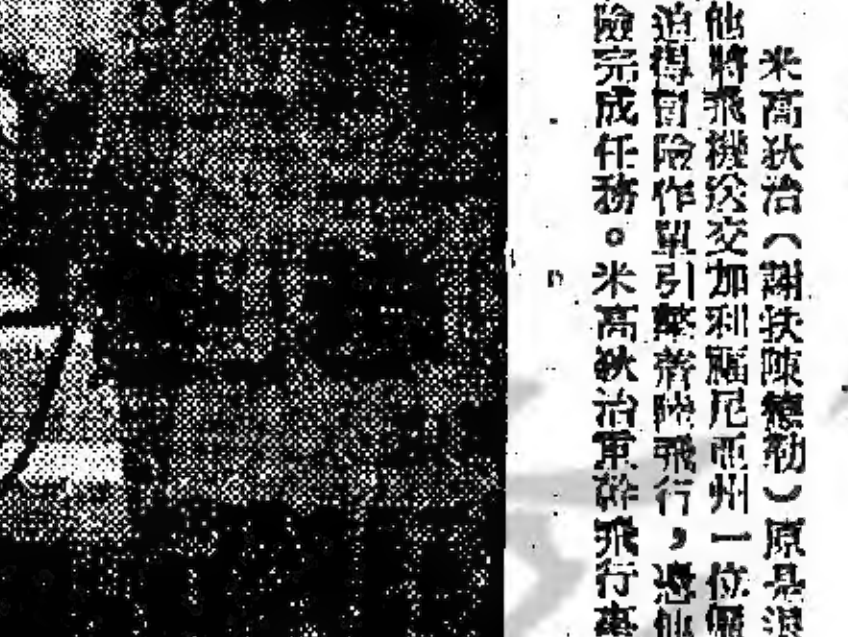 米高狄治（謝扶陳德勒）原是退
他將飛機送交加利福尼亞州一位僱
迫得冒險作單引擎着陸飛行，憑他
險完成任務。米高狄治重幹飛行事